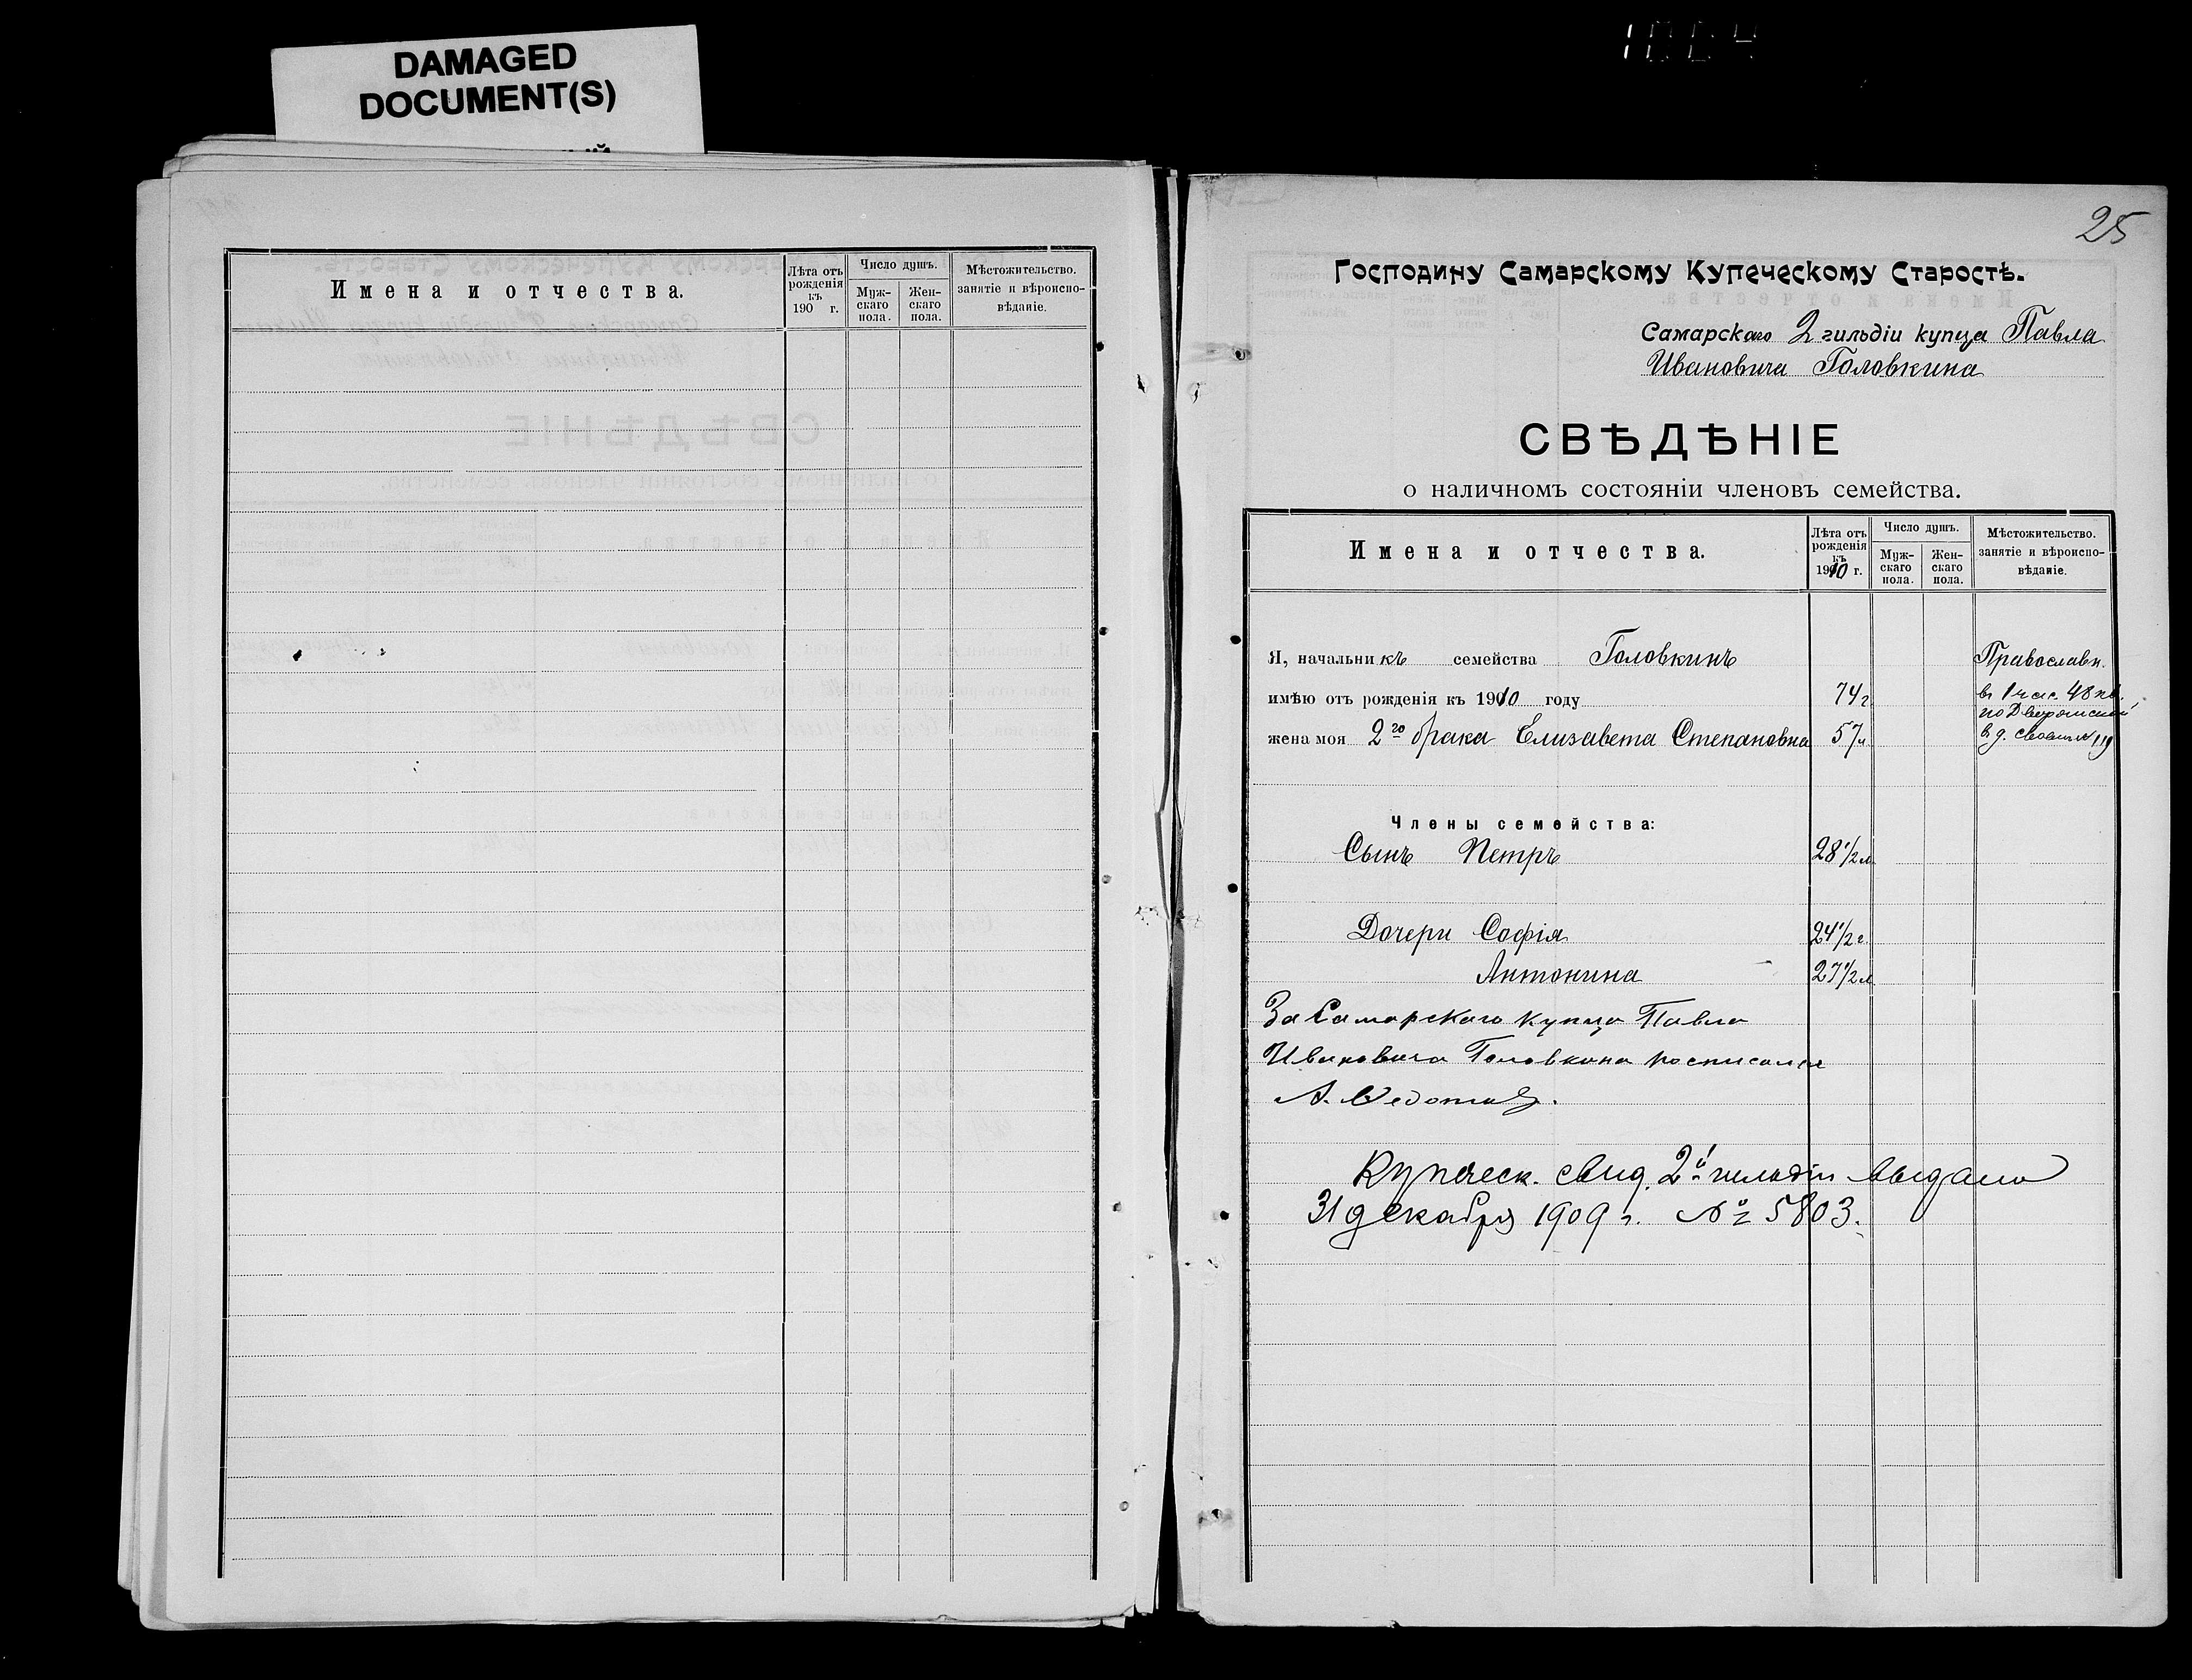 DAMAGED
DOCUMENT(S)
Имена и отчества.
Лѣта отъ
рожденія
къ
190 г.
Число душъ.
Муж-
скаго
пола.
Жен-
скаго
пола.
Мѣстожительство.
занятіе и вѣроиспо-
вѣданіе.
25
Господину Самарскому Купеческому Старостѣ.
Самарскаго 2 гильдіи купца Павла
Ивановича Головкина
СВѢДѢНІЕ
о наличномъ состояніи членовъ семейства.
Имена и отчества.
Лѣта отъ
рожденія
къ
1910 г.
Число душъ.
Муж-
скаго
пола.
Жен-
скаго
пола.
Мѣстожительство.
занятіе и вѣроиспо-
вѣданіе.
Я, начальникъ семейства Головкинъ
Православн.
имѣю отъ рожденія къ 1910 году 74 г
в 1 час. 48 кв.
по Дворянской
жена моя 2го брака Елизавета Степановна 57 л.
в д.
Члены семейства:
Сынъ Петръ 28 1/2 л.
Дочери Софія 24 1/2 г.
Антонина 27 1/2 л
За Самарскаго купца Павла
Ивановича Головкина росписался
А. Федотовъ.
Купческ. свид. 2й гильдіи выдано
31 декабря 1909 г. № 5803.